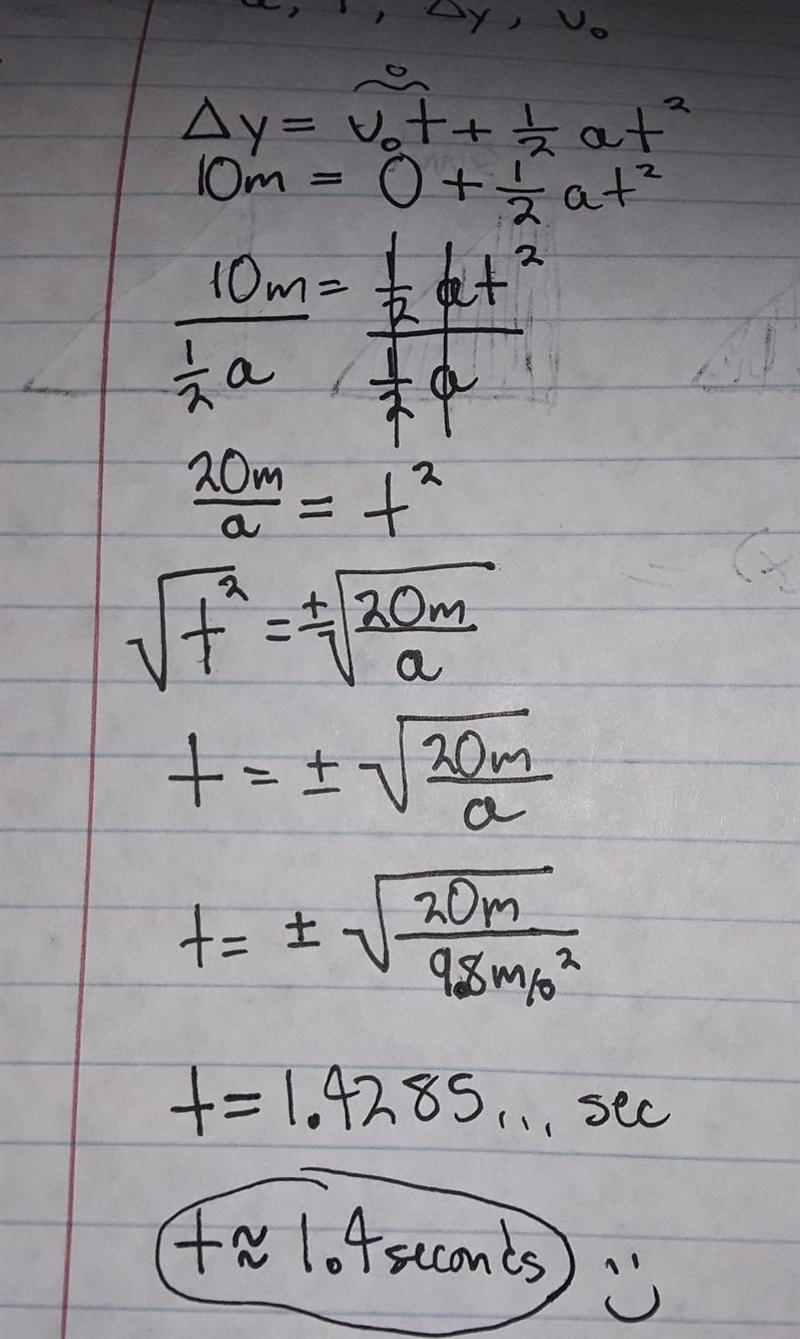 Δy, v₀
Δy = v₀t + ½ at²
0
10m = 0 + ½ at²
10m = ½ at²
½ a ½ a
20m/a = t²
√t² = ±√20m/a
t = ± √20m/a
t = ± √20m/9.8m/s²
t = 1.4285... sec
t ≈ 1.4 seconds :)